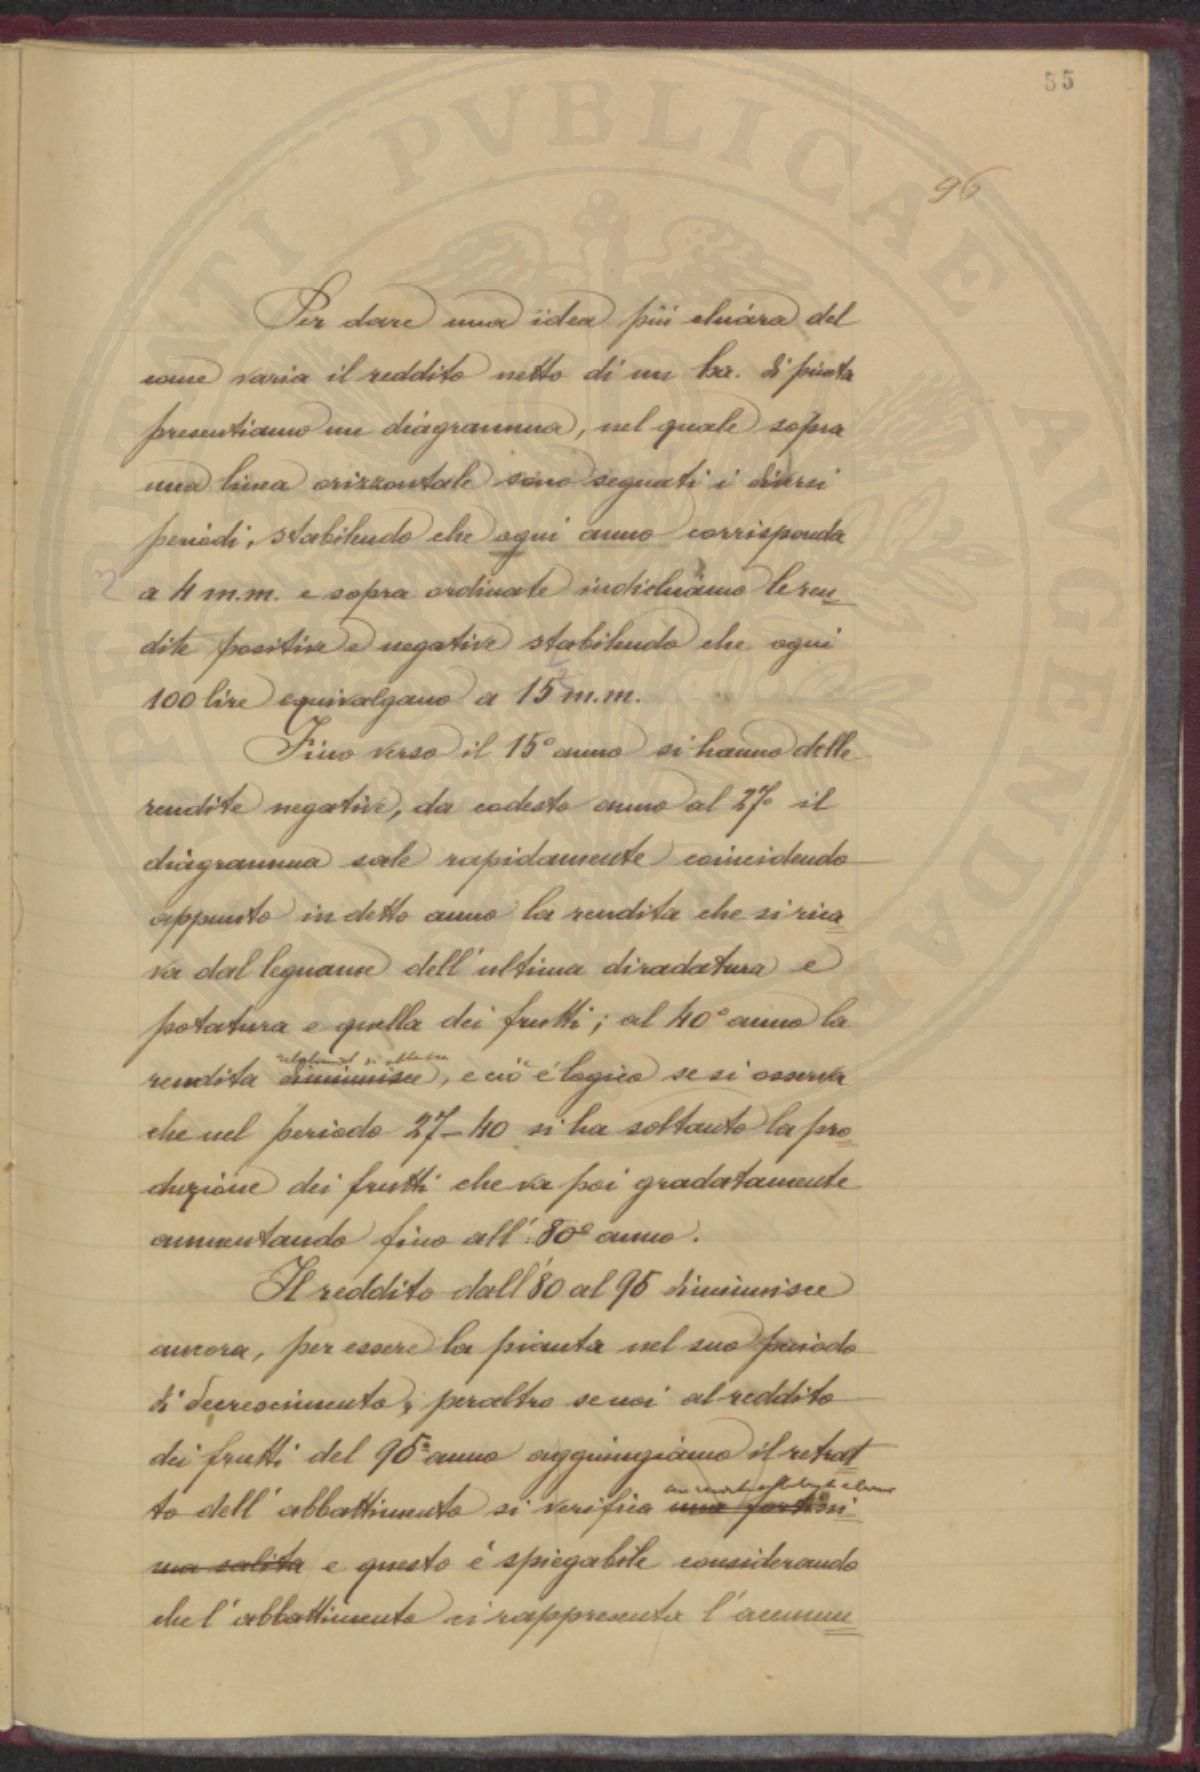 55
96
Per dare una idea più chiara del
come varia il reddito netto di un ha. di pineta
presentiamo un diagramma, nel quale sopra
una linea orizzontale sono segnati i diversi
periodi, stabilendo che ogni anno corrisponda
2 a 4 m.m. e sopra ordinate indichiamo le ren=
dite positive e negative stabilendo che ogni
100 lire equivalgano a 15 m.m.
Fino verso il 15° anno si hanno delle
rendite negative, da codesto anno al 27° il
diagramma sale rapidamente coincidendo
appunto in detto anno la rendita che si rica=
va dal legname dell'ultima diradatura e
potatura e quella dei frutti; al 40° anno la
rendita diminuisce, e ciò è logico se si osserva
che nel periodo 27-40 si ha soltanto la pro=
duzione dei frutti che va poi gradatamente
aumentando fino all'80° anno.
Il reddito dall'80 al 95 diminuisce
ancora, per essere la pianta nel suo periodo
di decrescimento, peraltro se noi al reddito
dei frutti del 95° anno aggiungiamo il retrat=
to dell'abbattimento si verifica una fortissi=
ma salita e questo è spiegabile considerando
che l'abbattimento ci rappresenta l'accumu=
PVBLICAE AVGENDAE